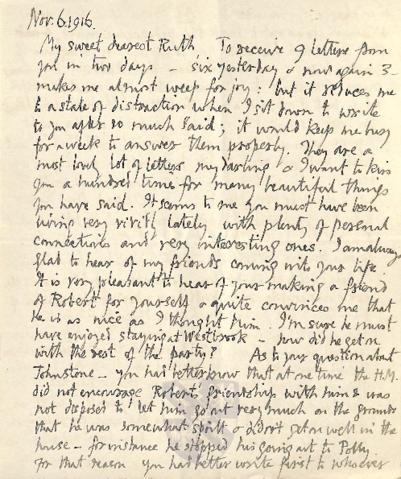 Nov. 6. 1916.
My sweet dearest Ruth To receive 9 letters from
you in two days – six yesterday & now again 3 –
makes me almost weep for joy: but it reduces me
to a state of distraction when I sit down to write
to you after so much said; it would keep me busy
for a week to answer them properly. They are a
most lovely lot of letters my darling & I want to kiss
you a hundred times for many beautiful things
you have said. It seems to me you must have been
living very lately with plenty of personal
connections and very interesting ones. I am always
glad to hear of my friends coming into your life.
It is very pleasant to hear of your making a friend
of Robert for yourself & quite convinces me that
he is as nice as I thought him. I'm sure he must
have enjoyed staying at Westbrook – how did he get on
with the rest of the party? As to your question about
Johnstone – you had better know that at one time the H.M.
did not encourage Robert's friendship with him & was
not disposed to let him go out very much on the grounds
that he was somewhat spoilt & didn't get on well in the
house – for instance he stopped his going out to
For that reason you had better write first to whoever